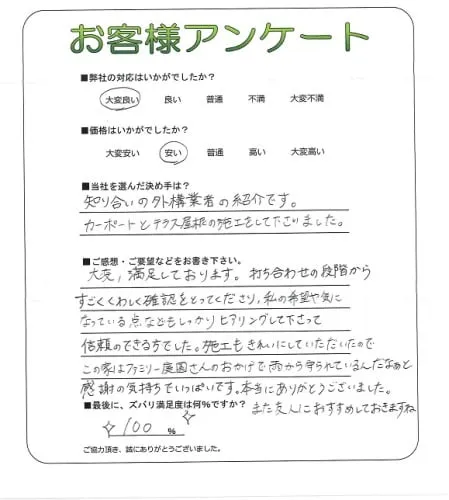 お客様アンケート
■弊社の対応はいかがでしたか？
大変良い 良い 普通 不満 大変不満
■価格はいかがでしたか？
大変安い 安い 普通 高い 大変高い
■当社を選んだ決め手は？
知り合いの外構業者の紹介です。
カーポートとテラス屋根の施工をして下さいました。
■ご感想・ご要望などをお書き下さい。
大変、満足しております。打ち合わせの段階から
すごくくわしく確認をとってくださり、私の希望や気に
なっている点などもしっかりヒアリングして下さって
信頼のできる方でした。施工もきれいにしていただいたので
この家はファミリー庭園さんのおかげで雨から守られているんだなぁと
感謝の気持ちでいっぱいです。本当にありがとうございました。
■最後に、ズバリ満足度は何%ですか？ また友人におすすめしておきますね
100 %
ご協力頂き、誠にありがとうございました。